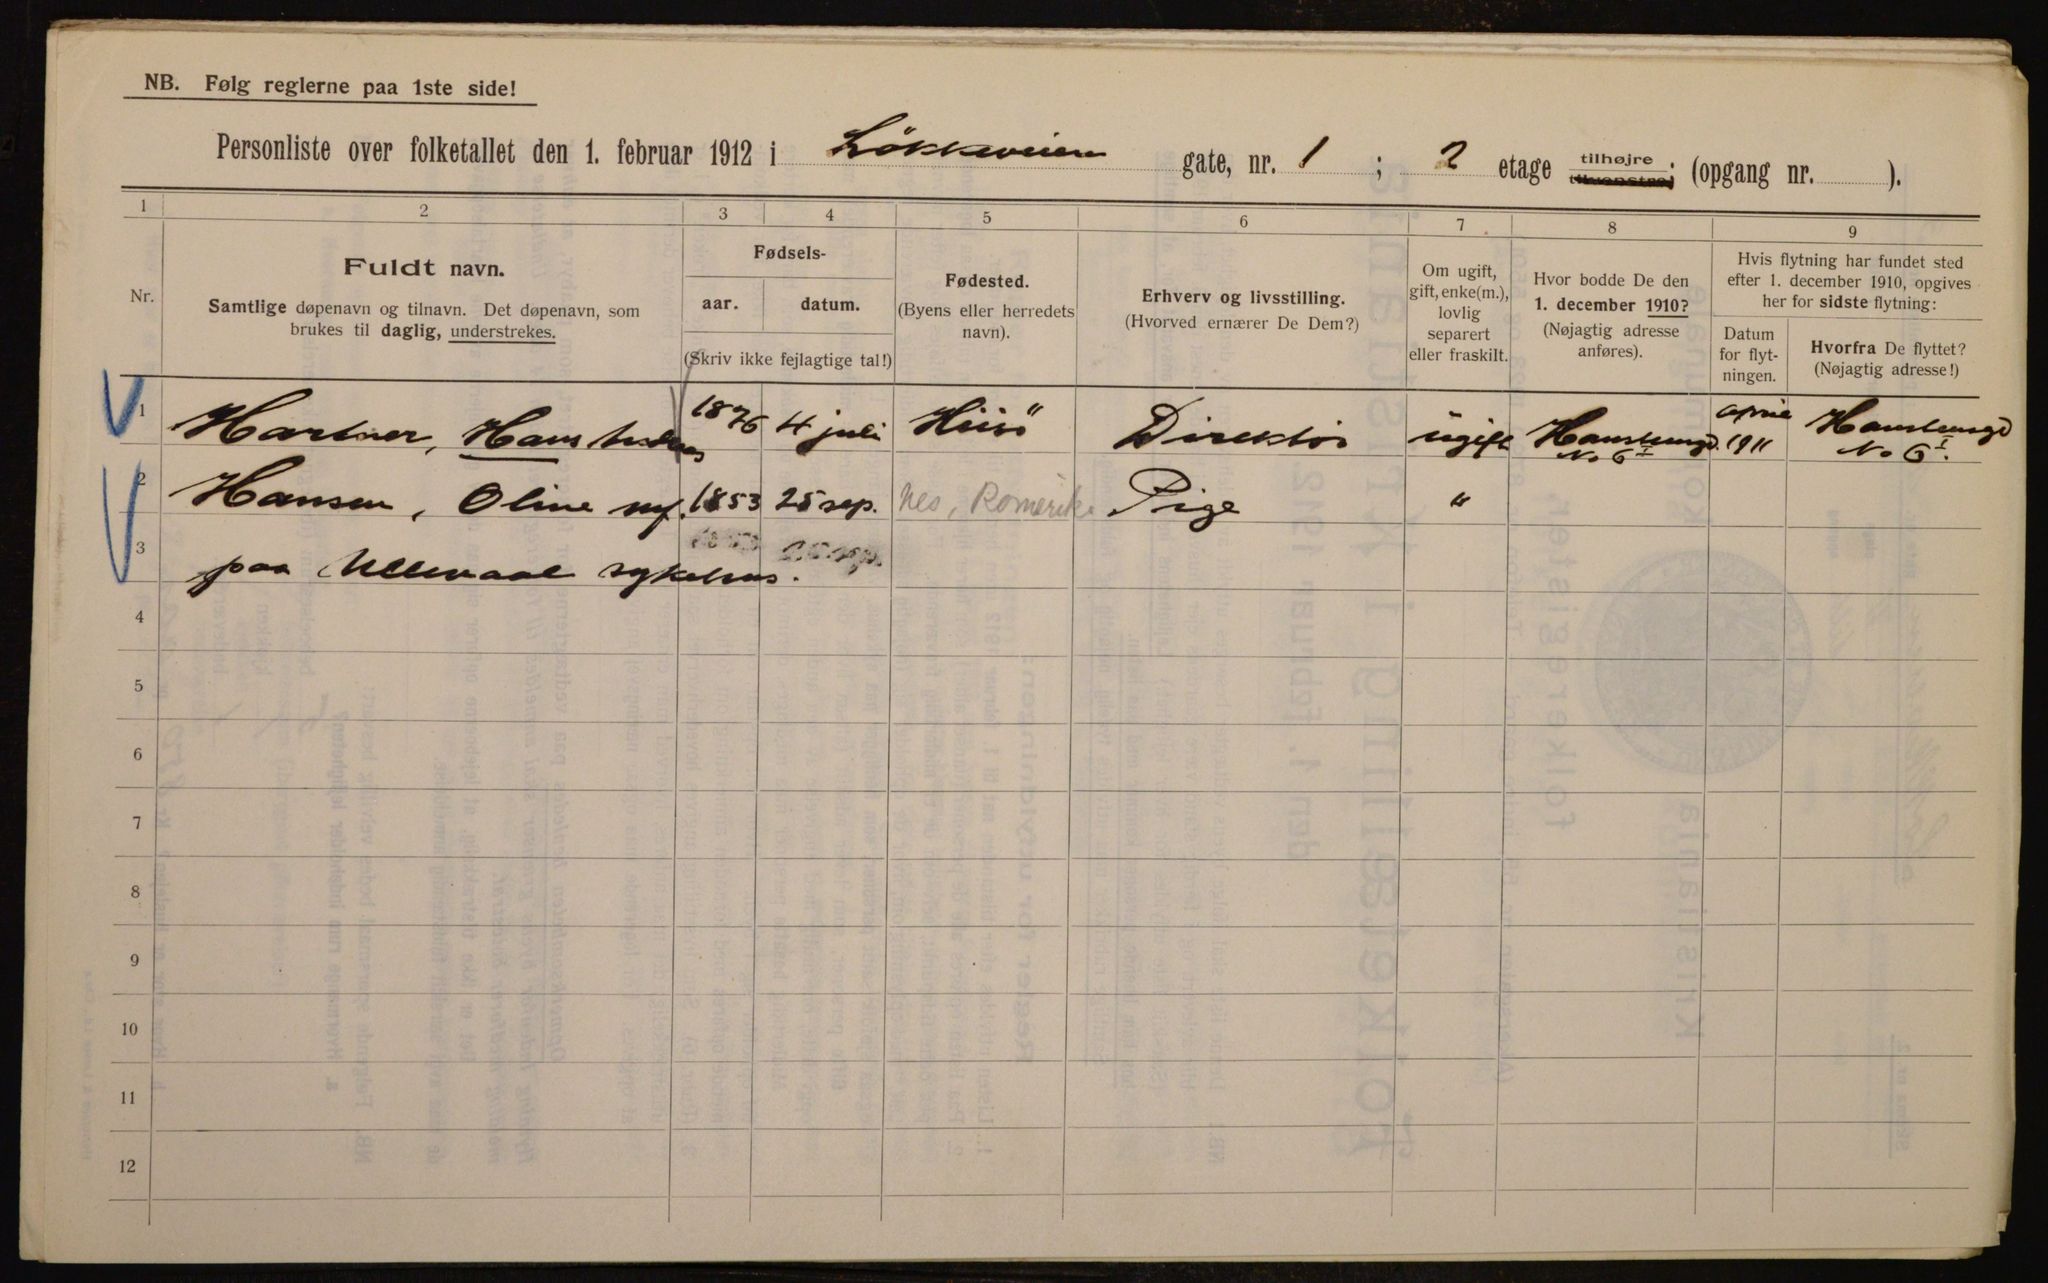 NB. Følg reglerne paa 1ste side!
Personliste over folketallet den 1. februar 1912 i Løkkeveien gate, nr. 1 ; 2 etage tilhøjre tilvenstre; (opgang nr. ).
1 2 3 4 5 6 7 8 9
Nr.
Fuldt navn.
Samtlige døpenavn og tilnavn. Det døpenavn, som
brukes til daglig, understrekes.
Fødsels-
aar. datum.
(Skriv ikke fejlagtige tal!)
Fødested.
(Byens eller herredets
navn).
Erhverv og livsstilling.
(Hvorved ernærer De Dem?)
Om ugift,
gift, enke(m.),
lovlig
separert
eller fraskilt.
Hvor bodde De den
1. december 1910?
(Nøjagtig adresse
anføres).
Hvis flytning har fundet sted
efter 1. december 1910, opgives
her for sidste flytning:
Datum
for flyt-
ningen.
Hvorfra De flyttet?
(Nøjagtig adresse!)
1 Hans 1876 4 juli Direktør ugift No 6 I april 1911 No 6 I.
2 Hansen, Oline 1853 25 sep. Nes, Romerike Pige "
3 paa Ullevaal sykehus.
4
5
6
7
8
9
10
11
12